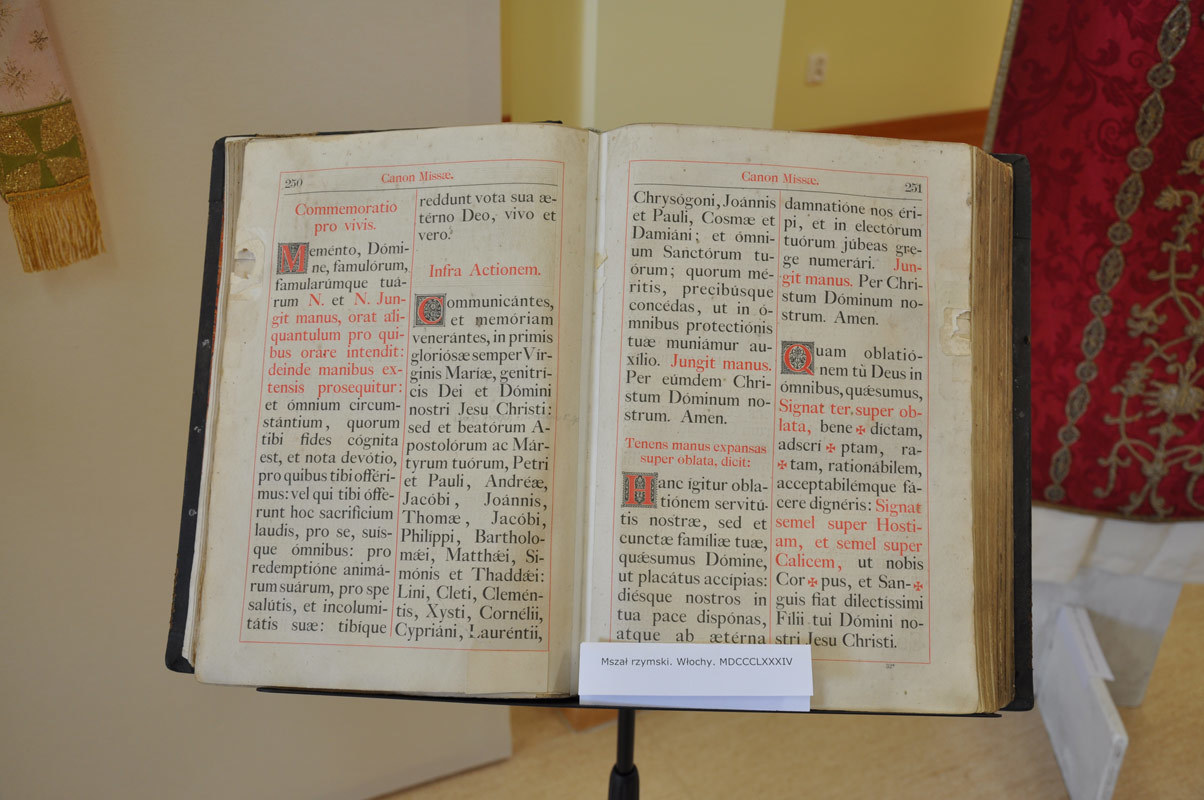 250
Canon Missæ.
Commemoratio
pro vivis.
Meménto, Dómi-
ne, famulórum,
famularúmque tuá-
rum N. et N. Jun-
git manus, orat ali-
quantulum pro qui-
bus oráre intendit:
deinde manibus ex-
tensis prosequitur:
et ómnium circum-
stántium, quorum
tibi fides cógnita
est, et nota devótio,
pro quibus tibi offéri-
mus: vel qui tibi offe-
runt hoc sacrifícium
laudis, pro se, suis-
que ómnibus: pro
redemptióne animá-
rum suárum, pro spe
salútis, et incolumi-
tátis suæ: tibíque
reddunt vota sua æ-
térno Deo, vivo et
vero.
Infra Actionem.
Communicántes,
et memóriam
venerántes, in primis
gloriósæ semper Vír-
ginis Maríæ, genitrí-
cis Dei et Dómini
nostri Jesu Christi:
sed et beatórum A-
postolórum ac Már-
tyrum tuórum, Petri
et Pauli, Andréæ,
Jacóbi, Joánnis,
Thomæ, Jacóbi,
Philíppi, Bartholo-
mǽi, Matthǽi, Si-
mónis et Thaddǽi:
Lini, Cleti, Clemén-
tis, Xysti, Cornélii,
Cypriáni, Lauréntii,
Canon Missæ.
251
Chrysógoni, Joánnis
et Pauli, Cosmæ et
Damiáni; et ómni-
um Sanctórum tu-
órum; quorum mé-
ritis, precibúsque
concédas, ut in ó-
mnibus protectiónis
tuæ muniámur au-
xílio. Jungit manus.
Per eúmdem Chri-
stum Dóminum no-
strum. Amen.
Tenens manus expansas
super oblata, dicit:
Hanc ígitur obla-
tiónem servitú-
tis nostræ, sed et
cunctæ famíliæ tuæ,
quǽsumus Dómine,
ut placátus accípias:
diésque nostros in
tua pace dispónas,
atque ab ætérna
damnatióne nos éri-
pi, et in electórum
tuórum júbeas gre-
ge numerári. Jun-
git manus. Per Chri-
stum Dóminum no-
strum. Amen.
Quam oblatió-
nem tù Deus in
ómnibus, quǽsumus,
Signat ter super ob-
lata, bene ✠ dictam,
adscrí ✠ ptam, ra-
✠ tam, rationábilem,
acceptabilémque fá-
cere dignéris: Signat
semel super Hosti-
am, et semel super
Calicem, ut nobis
Cor ✠ pus, et San- ✠
guis fiat dilectíssimi
Fílii tui Dómini no-
stri Jesu Christi.
Mszał rzymski. Włochy. MDCCCLXXXIV